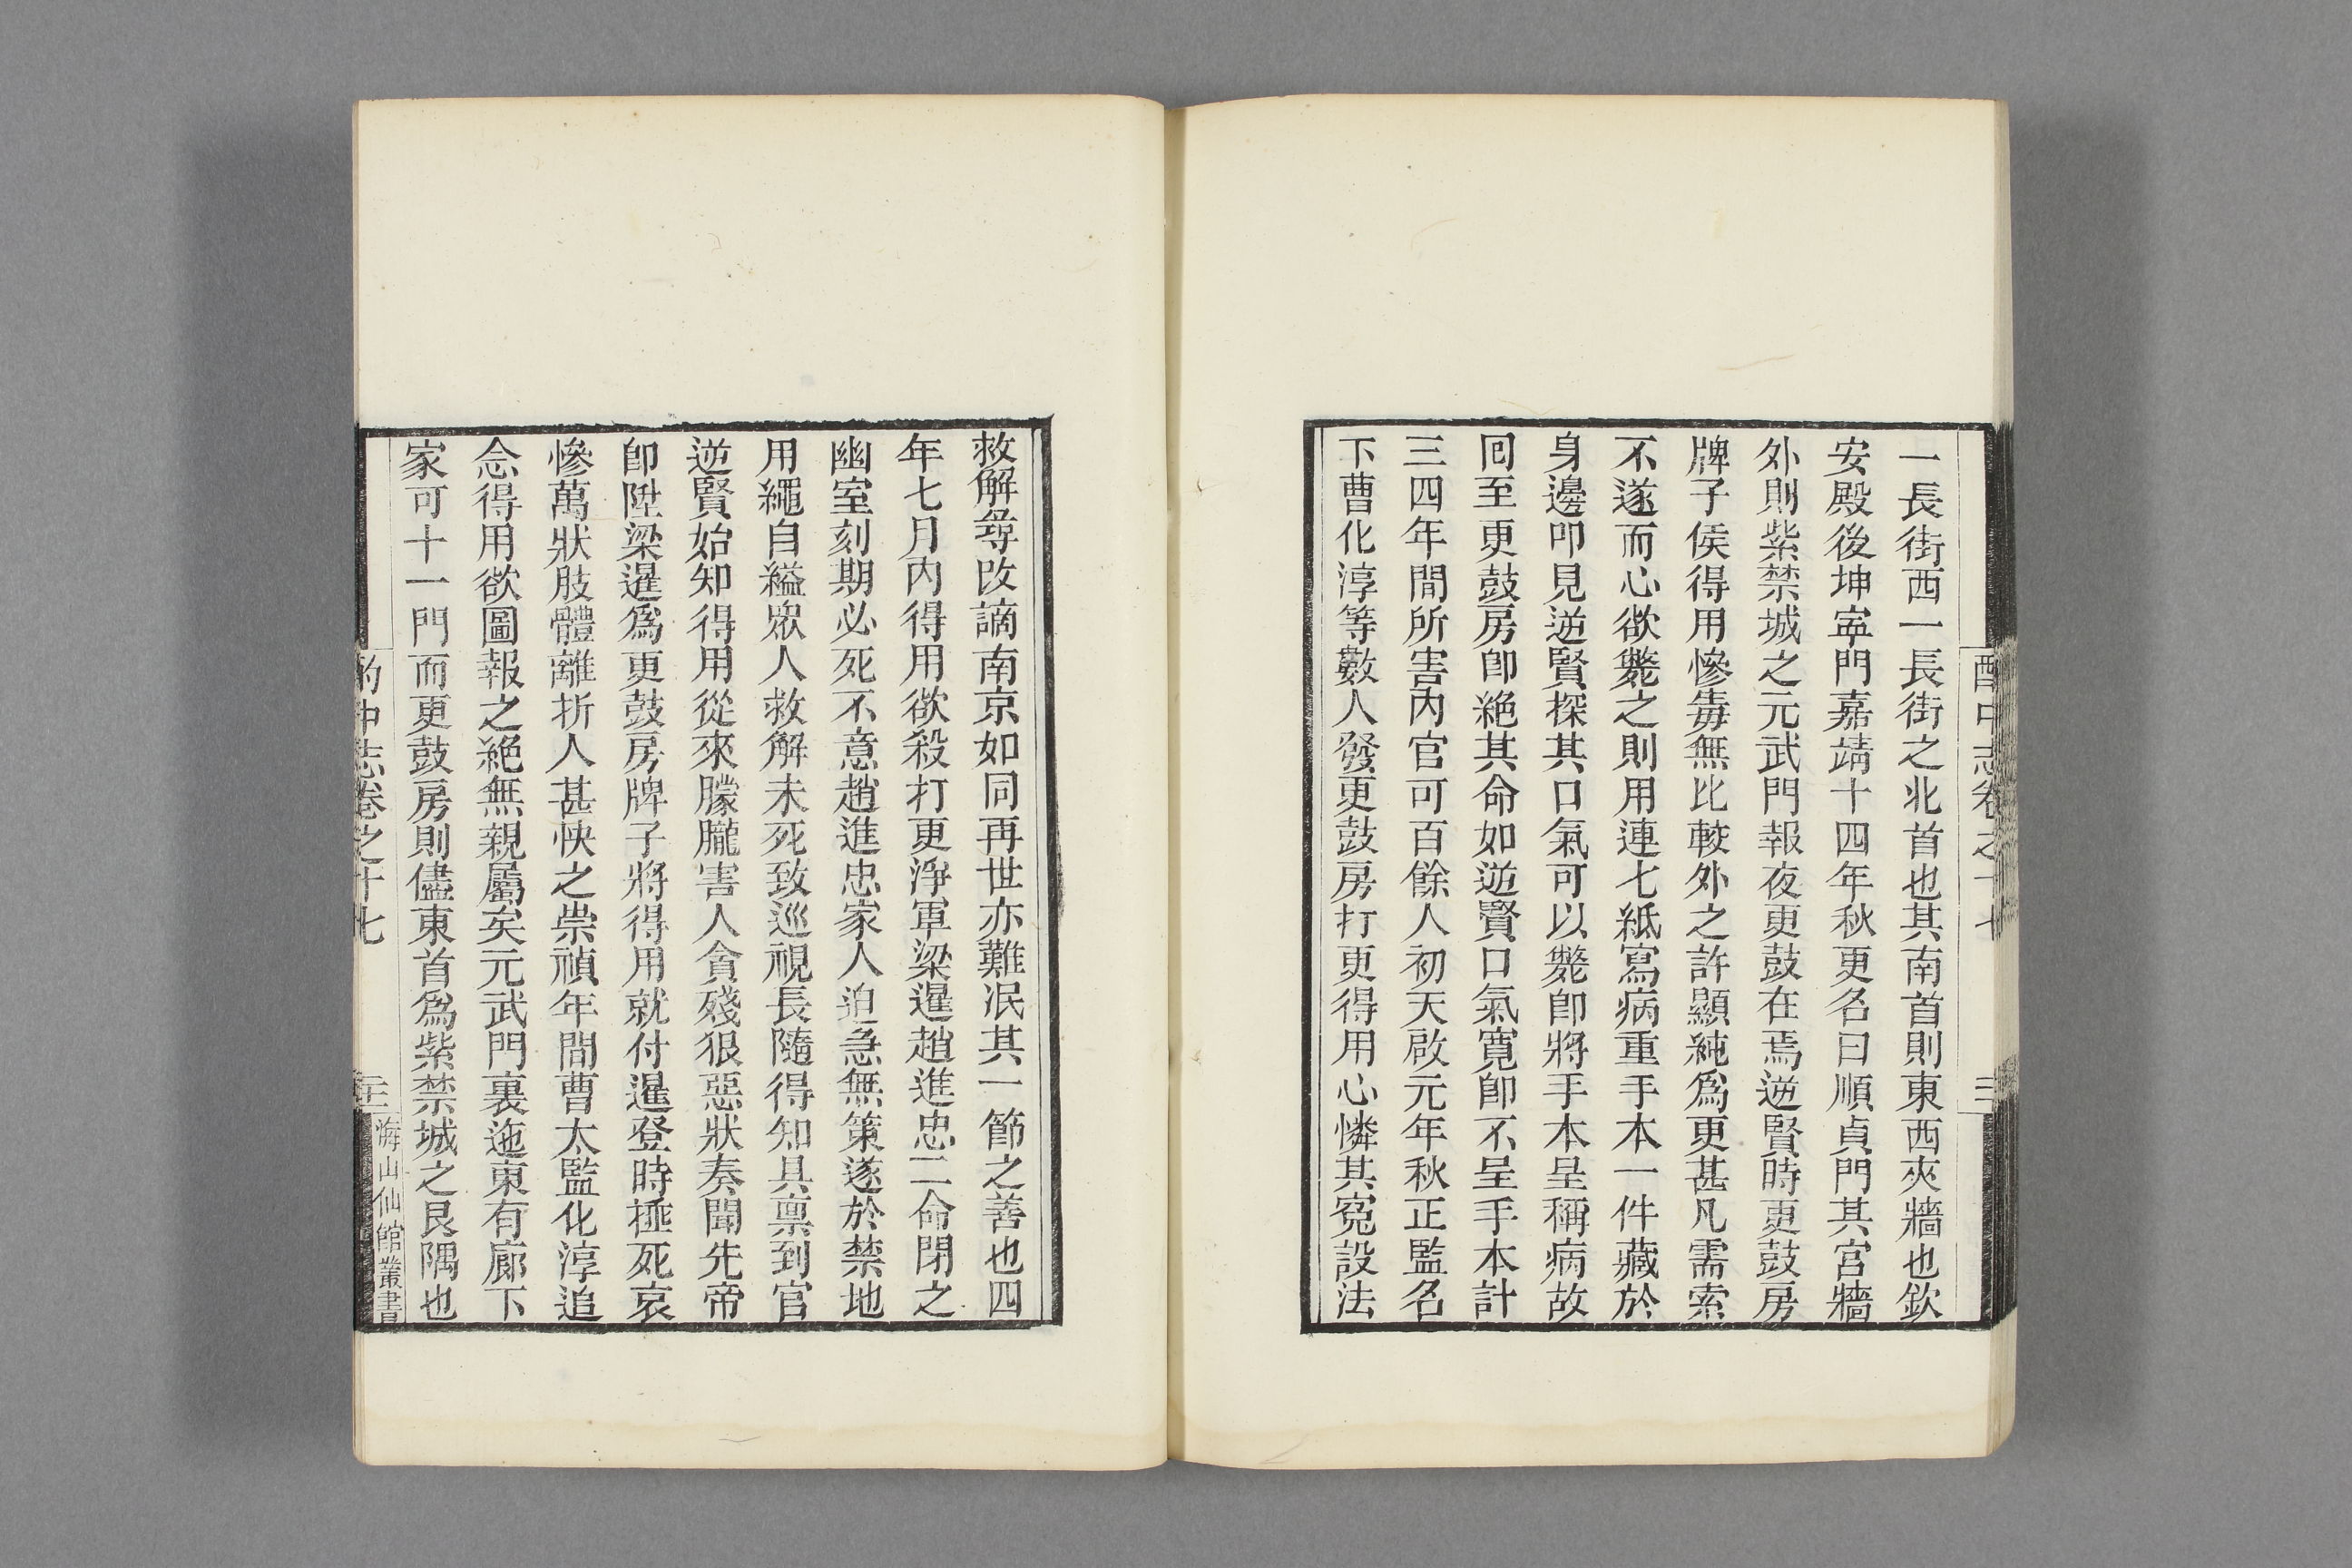 一長街西一長街之北首也其南首則東西夾牆也欽
安殿後坤寧門嘉靖十四年秋更名曰順貞門其宫牆
外則紫禁城之元武門報夜更鼓在焉逆賢時更鼓房
牌子侯得用慘毒無比較外之許顯純爲更甚凡需索
不遂而心欲斃之則用連七紙寫病重手本一件藏於
身邊叩見逆賢探其口氣可以斃卽將手本呈稱病故
囘至更鼓房卽絶其命如逆賢口氣寛卽不呈手本計
三四年間所害内官可百餘人初天啟元年秋正監名
下曹化淳等數人發更鼓房打更得用心憐其冤設法
酌中志卷之十七
救解尋改謫南京如同再世亦難泯其一節之善也四
年七月内得用欲殺打更淨軍梁暹趙進忠二命閉之
幽室刻期必死不意趙進忠家人迫急無策遂於禁地
用繩自縊眾人救解未死致巡視長隨得知具禀到官
逆賢始知得用從來朦朧害人貪殘狠惡狀奏聞先帝
卽陞梁暹爲更鼓房牌子將得用就付暹登時捶死哀
慘萬狀肢體離折人甚快之崇禎年間曹太監化淳追
念得用欲圖報之絶無親屬矣元武門裏迤東有廊下
家可十一門而更鼓房則儘東首爲紫禁城之艮隅也
酌中志卷之十七
海山仙館叢書